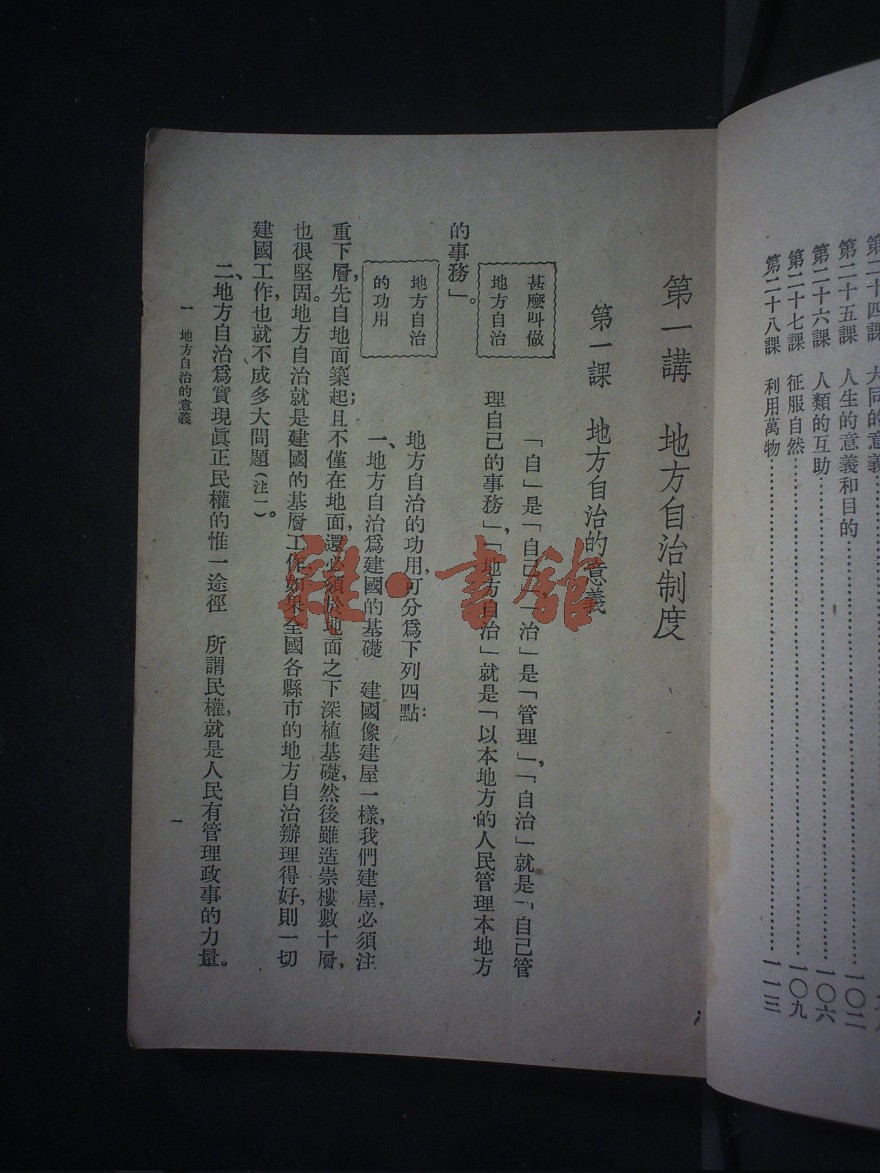 第二十四課　大同的意義
第二十五課　人生的意義和目的……一〇二
第二十六課　人類的互助……一〇六
第二十七課　征服自然……一〇九
第二十八課　利用萬物……一一三
第一講　地方自治制度
第一課　地方自治的意義
甚麼叫做
地方自治
「自」是「自己」,「治」是「管理」,「自治」就是「自己管
理自己的事務」,「地方自治」就是「以本地方的人民管理本地方
的事務」。
地方自治
的功用
地方自治的功用,可分爲下列四點:
一、地方自治爲建國的基礎　建國像建屋一樣,我們建屋,必須注
重下層,先自地面築起;且不僅在地面,還必須於地面之下深植基礎,然後雖造崇樓數十層,
也很堅固。地方自治就是建國的基層工作,如果全國各縣市的地方自治辦理得好,則一切
建國工作,也就不成多大問題(注一)。
二、地方自治爲實現眞正民權的惟一途徑　所謂民權,就是人民有管理政事的力量。
一　地方自治的意義
一
雜·書館